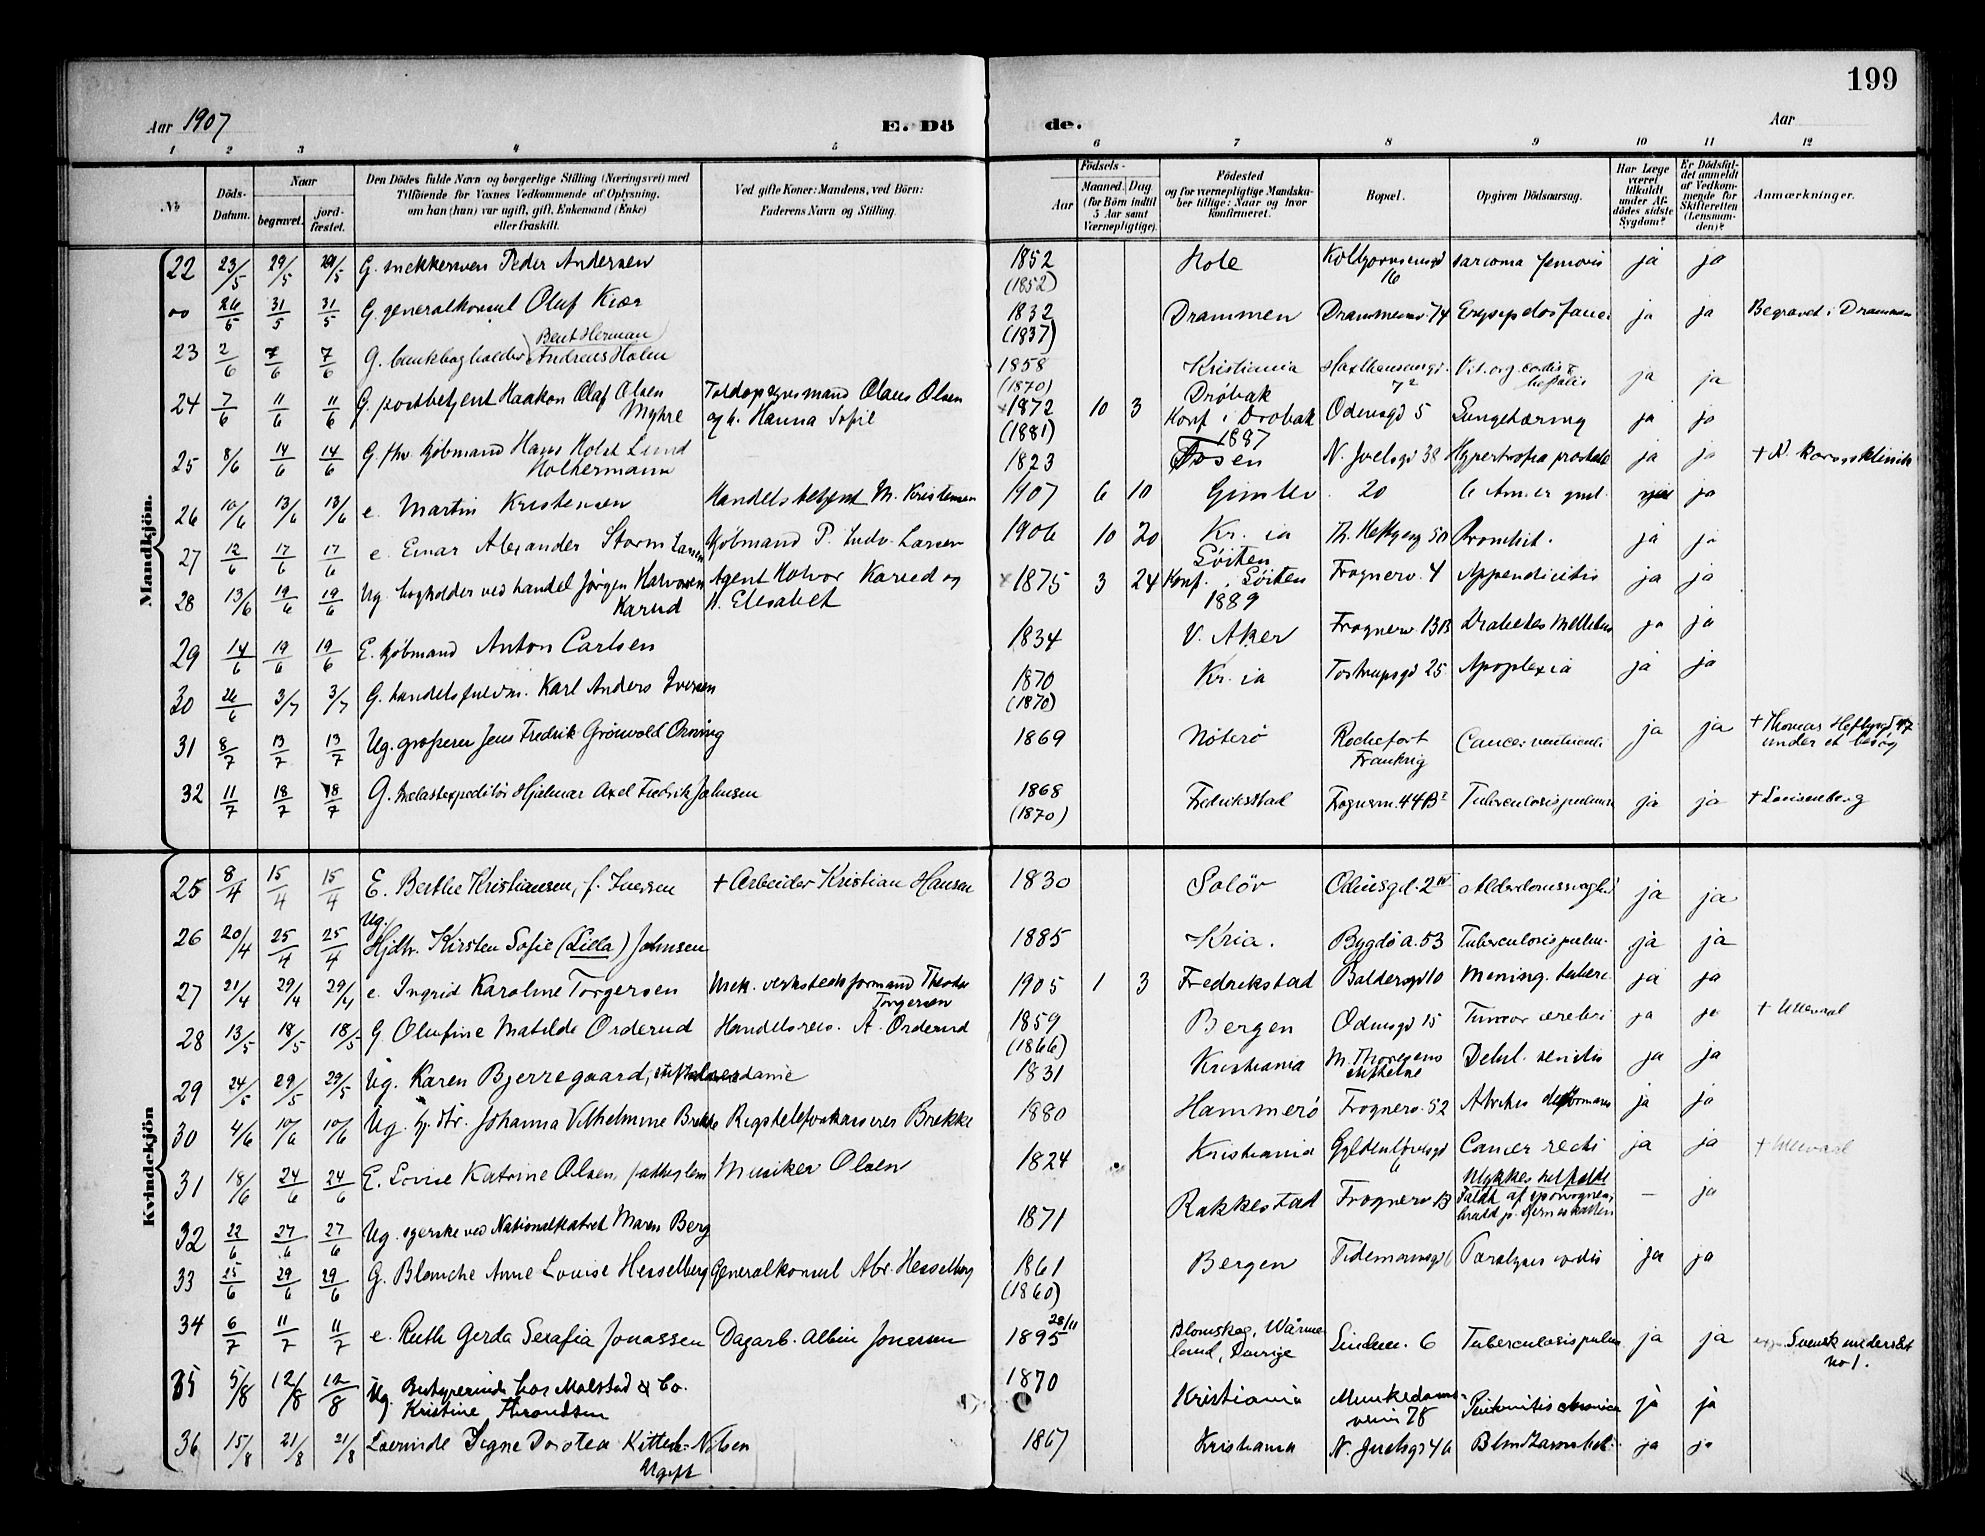 199
Aar 1907 E. Dö de. Aar
1 2 3 4 5 6 7 8 9 10 11 12
№ Döds-Datum. Naar begravet. jord-fæstet.
Den Dödes fulde Navn og borgerlige Stilling (Næringsvei) med
Tilföiende for Voxnes Vedkommende af Oplysning,
om han (hun) var ugift, gift, Enkemand (Enke)
eller fraskilt.
Ved gifte Koner: Mandens, ved Börn:
Faderens Navn og Stilling.
Födsels-
Aar Maaned. Dag
(for Börn indtil
5 Aar samt
Værnepligtige).
Födested
og for værnepligtige Mandska-
ber tillige: Naar og hvor
konfirmeret.
Bopæl.
Opgiven Dödsaarsag.
Har Læge
været
tilkaldt
under Af-
dödes sidste
Sygdom?
Er Dödsfal-
det anmeldt
af Vedkom-
mende for
Skifteretten
(Lensman-
den)?
Anmærkninger.
Mandkjön.
22 23/5 29/5 29/5 G. snekkersven Peder Andersen 1852 (1852) Hole 16 sarcoma femoris ja ja
" 26/5 31/5 31/5 G. generalkonsul Oluf Kiær 1832 (1837) Drammen Drammensv. 74 ja ja Begravet i Drammen
23 2/6 7/6 7/6 G. bankbogholder Bent Herman Andreas Holm 1858 (1870) Kristiania Vit. org. cordis & hepatis ja ja
24 7/6 11/6 11/6 G. postbetjent Haakon Olaf Olsen Myhre Toldopsynsmand Olaus Olsen og h. Hanna Sofie 1872 (1881) 10 3 Dröbak Konf i Drøbak 1887 Odinsgd 5 Lungetæring ja ja
25 8/6 14/6 14/6 G. fhv kjöbmand Hans Holst Lund Holtermann 1823 Fosen N. Juelsgd 38 Hypertrofia prostate ja ja
26 10/6 13/6 13/6 e. Martin Kristensen Handelsbetjent M. Kristensen 1907 6 10 Gimlev. 20 ja
27 12/6 17/6 17/6 e. Einar Alexander Storm Larsen Kjöbmand P. Ludv. Larsen 1906 10 20 Kr. ia Th. Heftyesg 50 Bronchit. ja ja
28 13/6 19/6 19/6 Ug. bogholder ved handel Jørgen Halvorsen Karud Agent Halvor Karud og h. Elisabet 1875 3 24 Löiten Konf. i Löiten 1889 Frognerv. 4 Appendicitis ja ja
29 14/6 19/6 19/6 E. kjöbmand Anton Carlsen 1834 V. Aker Frognerv. 13B Diabetes Mellitus ja ja
30 26/6 3/7 3/7 G. handelsfuldm. Karl Anders Iversen 1870 (1870) Kr. ia Tostrupsgd 25 Apoplexia ja ja
31 8/7 13/7 13/7 Ug. grosserer Jens Fredrik Grönvold Orning 1869 Nöterö Rochefort Frankrig Cancer ventriculi ja ja + Thomas Heftyesgd 47 under et besøg
32 11/7 18/7 18/7 G. Hjalmar Axel Fredrik Johnsen 1868 (1870) Fredriksstad Frognerv. 44B² Tuberculosis pulmon ja ja + Louisenberg
Kvindekjön
25 8/4 15/4 15/4 E. Berthe Kristiansen, f. Iversen + Arbeider Kristian Hansen 1830 Solör Odinsgd. 2 IV Alderdomssvaghed ja ja
26 20/4 25/4 25/4 Ug. Hjdtr. Kirsten Sofie (Lilla) Johnsen 1885 Kria. Bygdö a. 53 Tuberculosis pulm. ja ja
27 21/4 29/4 29/4 e. Ingrid Karoline Torgersen Mek. verkstedsformand Theodor Torgersen 1905 1 3 Fredrikstad Baldersgd 10 Mening. tuberc. ja ja
28 13/5 18/5 18/5 G Olufine Matilde Orderud Handelsreis. A. Orderud 1859 (1866) Bergen Odinsgd 15 Tumor cerebri ja ja + Ullevaal
29 24/5 29/5 29/5 Ug. Karen Bjerregaard, 1831 Kristiania M. Thoresens stiftelse Debil. senilis ja ja
30 4/6 10/6 10/6 Ug. hj. dtr. Johanna Vilhelmine Brekke Rigstelefonkasseres Brekke 1880 Hammerö Frognerv. 52 ja ja
31 18/6 24/6 24/6 E. Lovise Katrine Olsen, fattiglem Musiker Olsen 1824 Kristiania Gyldenlövesgd 6 Cancer recti ja ja + Ullevaal
32 22/6 27/6 27/6 Ug. syerske ved Nationalteatret Maren Berg 1871 Rakkestad Frognerv 13 Ulykkestilfælde Faldt af sporvognen, — ja
33 25/6 29/6 29/6 G. Blanche Anne Louise Hesselberg Generalkonsul Abr. Hesselberg 1861 (1860) Bergen Tidemandsgd 6 Paralysis cordis ja ja
34 6/7 11/7 11/7 e. Ruth Gerda Serafia Jonassen Dagarb. Albin Jonassen 1895 28/11 Blomskog, Wärmeland, Sverige Lindev. 6 Tuberculosis pulm. ja ja Svensk underslåt no 1.
35 5/8 12/8 12/8 Ug. Bestyrerinde hos Molstad & Co. Kristine Throndsen 1870 Kristiania Munkedamsveien 78 Peritonitis chronica ja ja
36 15/8 21/8 21/8 Lærerinde Signe Dorotea Kittel-Nilsen Ugift 1867 Kristiania N. Juelsgd 46 ja ja